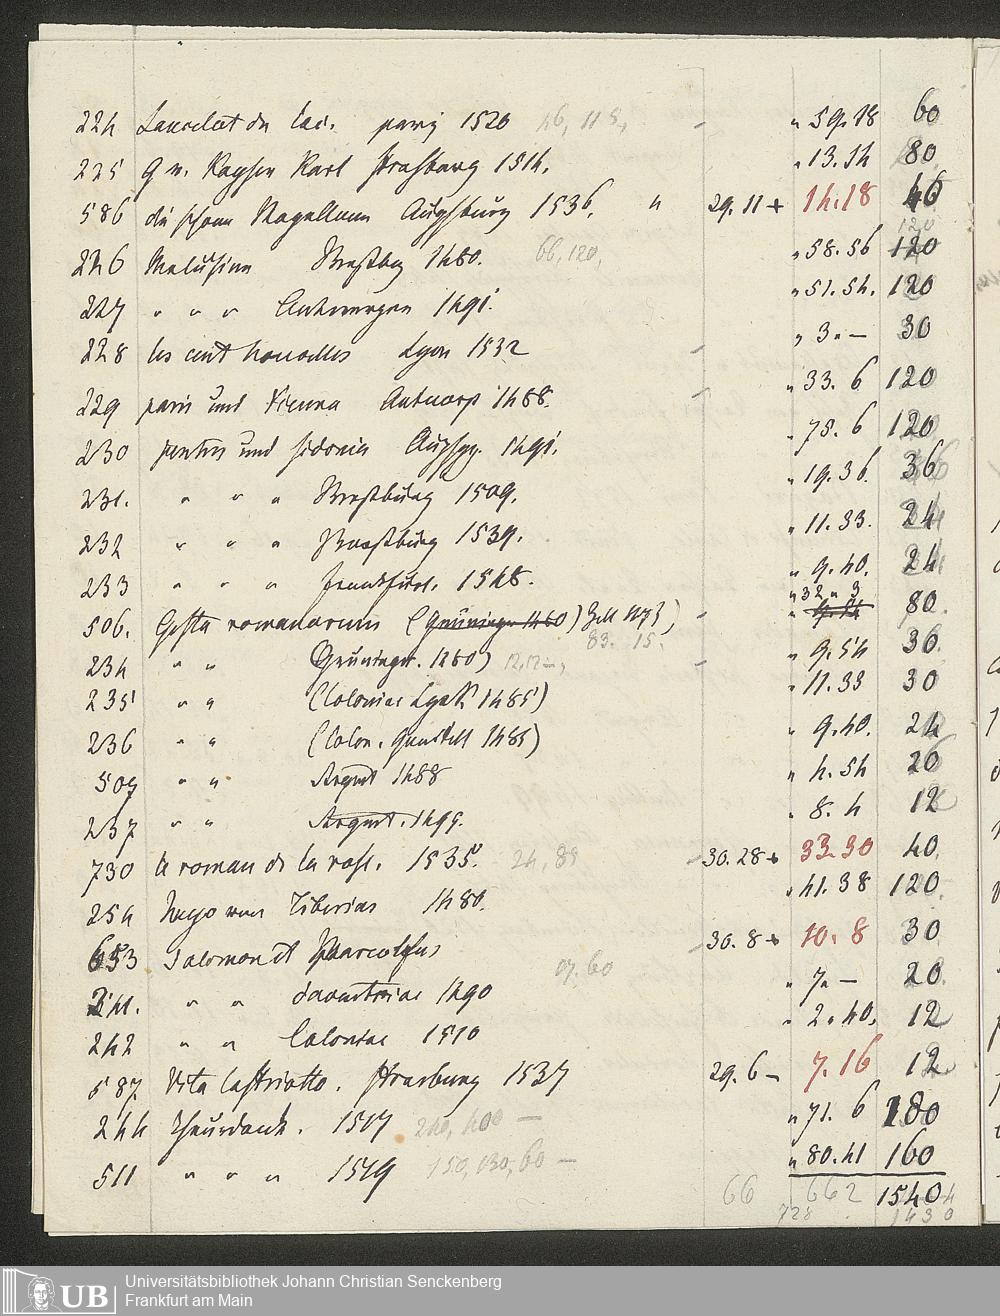 224 Lancelot du Lac. paris 1520 46, 118, — „ 59.18 60
225 Strasburg 1514. „ 13.34 80
586 die schone Magellana Augsburg 1536. „ 29.11 + 14.18 40
120
226 Melusina Strasbg 1480. 66, 120, „ 58.56 120
227 „ „ „ Antwerpen 1491. „ 51.54. 120
228 les cent nouvelles Lyon 1532 — „ 3.— 30
229 paris und Vienna Antwerp 1488. — „ 33. 6 120
230 pontus und sidonia Augspg. 1491. „ 75. 6 120
231. „ „ „ Strasburg 1509. „ 19.36. 36
232 „ „ „ Strasburg 1539. „ 11.33. 24
233 „ „ „ frankfurt. 1548. „ 9.40. 24
506. Gesta romanorum — „ 32 „ 3 80
83. 15.
234 „ „ Gruninger. 12,12—, — „ 9.54 30
235 „ „ (Coloniae 1485) „ 11.33 30
236 „ „ (Colon. Quentell 1485) „ 9.40. 24
507 „ „ Argent 1488 „ 4.54 20
237 „ „ Argent. 1499. „ 8. 4 12
730 le roman de la rose. 1535. 24, 85 — 30.28 + 33.30 40
254 hugo von Tiberias 1480. „ 41.38 120
653 Salomon et Marcolfus — 30.8 + 10. 8 30
07.60
241. „ „ daventriae 1490 „ 7.— 20
242 „ „ Coloniae 1510 „ 2.40. 12
587. Vita Castriotto. Strasburg 1537 29.6 — 7.16 12
244 Theurdank. 1517 240, 400 — „ 71. 6 180
511 „ „ „ 1519 150, 130, 60 — „ 80.41 160
66 662 1540
728 1430
UB Universitätsbibliothek Johann Christian Senckenberg
Frankfurt am Main